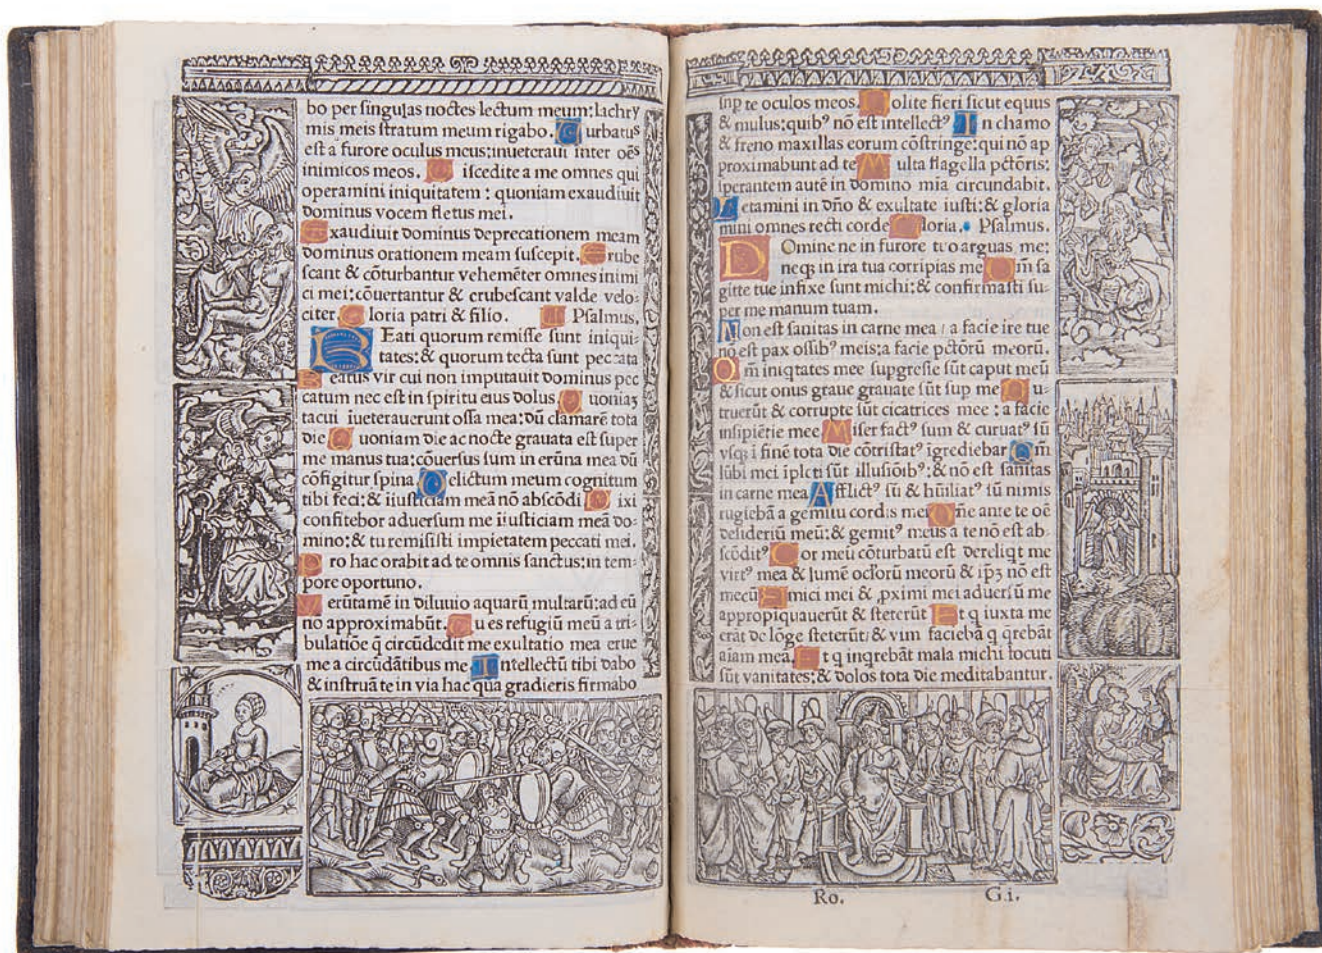 bo per singulas noctes lectum meum: lachry
mis meis stratum meum rigabo. Turbatus
est a furore oculus meus: inueteraui inter oẽs
inimicos meos. Discedite a me omnes qui
operamini iniquitatem: quoniam exaudiuit
dominus vocem fletus mei.
Exaudiuit dominus deprecationem meam
dominus orationem meam suscepit. Erube
scant & cõturbantur vehemẽter omnes inimi
ci mei: cõuertantur & erubescant valde velo-
citer. Gloria patri & filio. Psalmus.
BEati quorum remisse sunt iniqui-
tates: & quorum tecta sunt peccata
Beatus vir cui non imputauit dominus pec
catum nec est in spiritu eius dolus. Quoniaȝ
tacui iueterauerunt ossa mea: dũ clamarẽ tota
die Quoniam die ac nocte grauata est super
me manus tua: cõuersus sum in erũna mea dũ
cõfigitur spina Delictum meum cognitum
tibi feci: & iiusticiam meã nõ abscõdi Dixi
confitebor aduersum me iiusticiam meã do-
mino: & tu remisisti impietatem peccati mei.
Pro hac orabit ad te omnis sanctus: in tem-
pore oportuno.
Verũtamẽ in diluuio aquarũ multarũ: ad eũ
nõ approximabũt. Tu es refugiũ meũ a tri-
bulatiõe q̃ circũdedit me exultatio mea erue
me a circũdãtibus me Intellectũ tibi dabo
& instruã te in via hac qua gradieris firmabo
sup te oculos meos. Nolite fieri sicut equus
& mulus: quibꝰ nõ est intellectꝰ In chamo
& freno maxillas eorum cõstringe: qui nõ ap
proximabunt ad te Multa flagella pctõris:
sperantem autẽ in domino mia circundabit.
Letamini in dño & exultate iusti: & gloria
mini omnes recti corde Gloria. Psalmus.
DOmine ne in furore tuo arguas me:
neqȝ in ira tua corripias me Qm̃ sa
gitte tue infixe sunt michi: & confirmasti su-
per me manum tuam.
Non est sanitas in carne mea / a facie ire tue
nõ est pax ossibꝰ meis: a facie pctõrũ meorũ.
Qm̃ iniqtates mee supgresse sũt caput meũ
& sicut onus graue grauate sũt sup me Pu-
truerũt & corrupte sũt cicatrices mee: a facie
insipiẽtie mee Miser factꝰ sum & curuatꝰ sũ
vsqȝ ĩ finẽ tota die cõtristatꝰ igrediebar Qm̃
lũbi mei ĩpleti sũt illusiõibꝰ: & nõ est sanitas
in carne mea Afflictꝰ sũ & hũiliatꝰ sũ nimis
rugiebã a gemitu cordis mei Dñe ante te oẽ
desideriũ meũ: & gemitꝰ meus a te nõ est ab-
scõditꝰ Cor meũ cõturbatũ est dereliqt me
virtꝰ mea & lumẽ oclorũ meorũ & ipȝ nõ est
mecũ Amici mei & ꝓximi mei aduersũ me
appropiquauerũt & steterũt Et q iuxta me
erãt de lõge steterũt: & vim faciebã q qrebãt
aiam meã. Et q inqrebãt mala michi locuti
sũt vanitates: & dolos tota die meditabantur.
Ro. G.i.